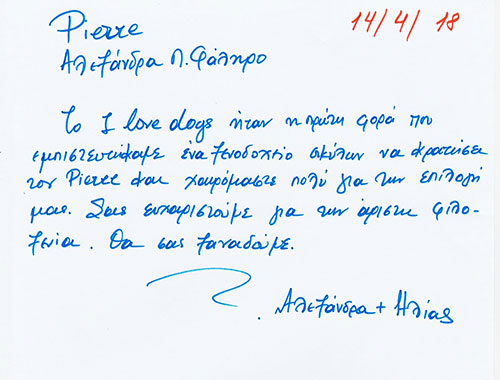 Pierre 14/4/18
Αλεξάνδρα Π. Φάληρο
Το I love dogs ήταν η πρώτη φορά που
εμπιστευτήκαμε ένα ξενοδοχείο σκύλων να κρατήσει
τον Pierre και χαιρόμαστε πολύ για την επιλογή
μας. Σας ευχαριστούμε για την άριστη φιλο-
ξενία. Θα σας ξαναδούμε.
Αλεξάνδρα + Ηλίας